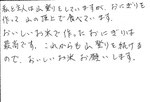 私と主人は山登りをしていますが、おにぎりを
作って山の頂上で食べています。
おいしいお米で作ったおにぎりは
最高です。これからも山登りを続ける
ので、おいしいお米お願いします。